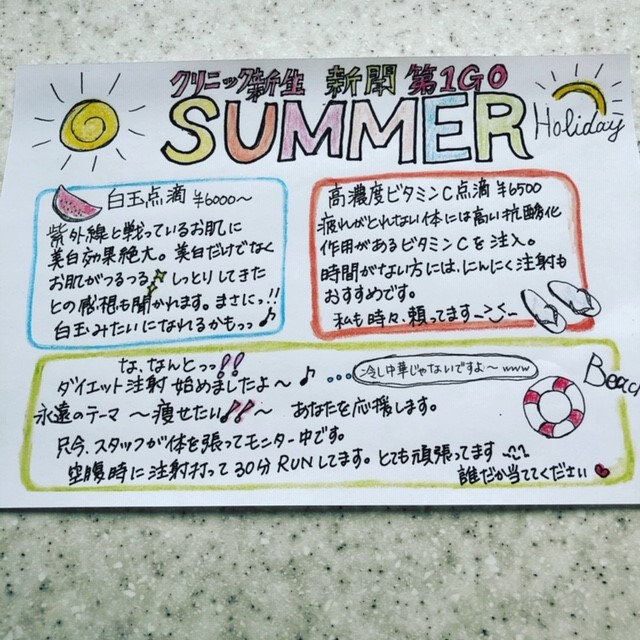 クリニック新生 新聞 第1GO
SUMMER
Holiday
白玉点滴 ¥6000〜
紫外線と戦っているお肌に
美白効果絶大。美白だけでなく
お肌がつるつる しっとりしてきた
との感想も聞かれます。まさにっ!!
白玉みたいになれるかもっっ♪
高濃度ビタミンC点滴 ¥6500
疲れがとれない体には高い抗酸化
作用があるビタミンCを注入。
時間がない方には、にんにく注射も
おすすめです。
私も時々、頼ってます
な、なんとっっ!!
ダイエット注射 始めましたよ〜♪
冷し中華じゃないですよ〜www
永遠のテーマ 〜痩せたい!!〜 あなたを応援します。
只今、スタッフが体を張ってモニター中です。
空腹時に注射打って30分RUNしてます。とても頑張ってます
誰だか当ててください
Beach